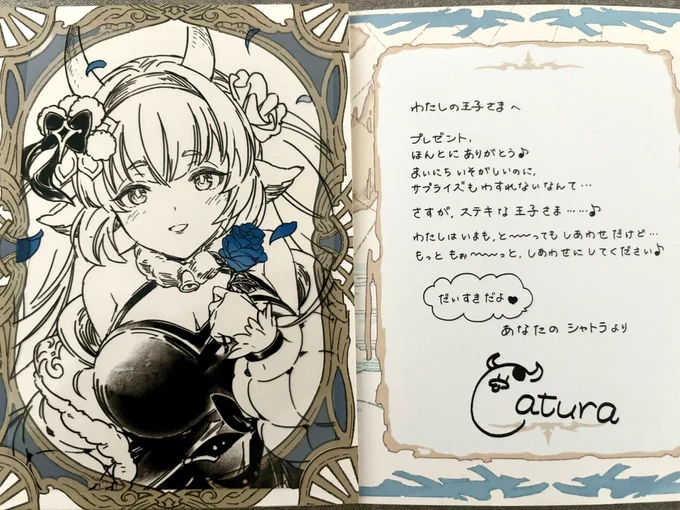 わたしの王子さまへ
プレゼント,
ほんとに ありがとう♪
まいにち いそがしいのに,
サプライズも わすれないなんて…
さすが, ステキな 王子さま……♪
わたしは いまも, と〜〜っても しあわせ だけど…
もっと もぉ〜〜〜っと, しあわせに してください♪
だいすきだよ♥
あなたの シャトラより
Catura